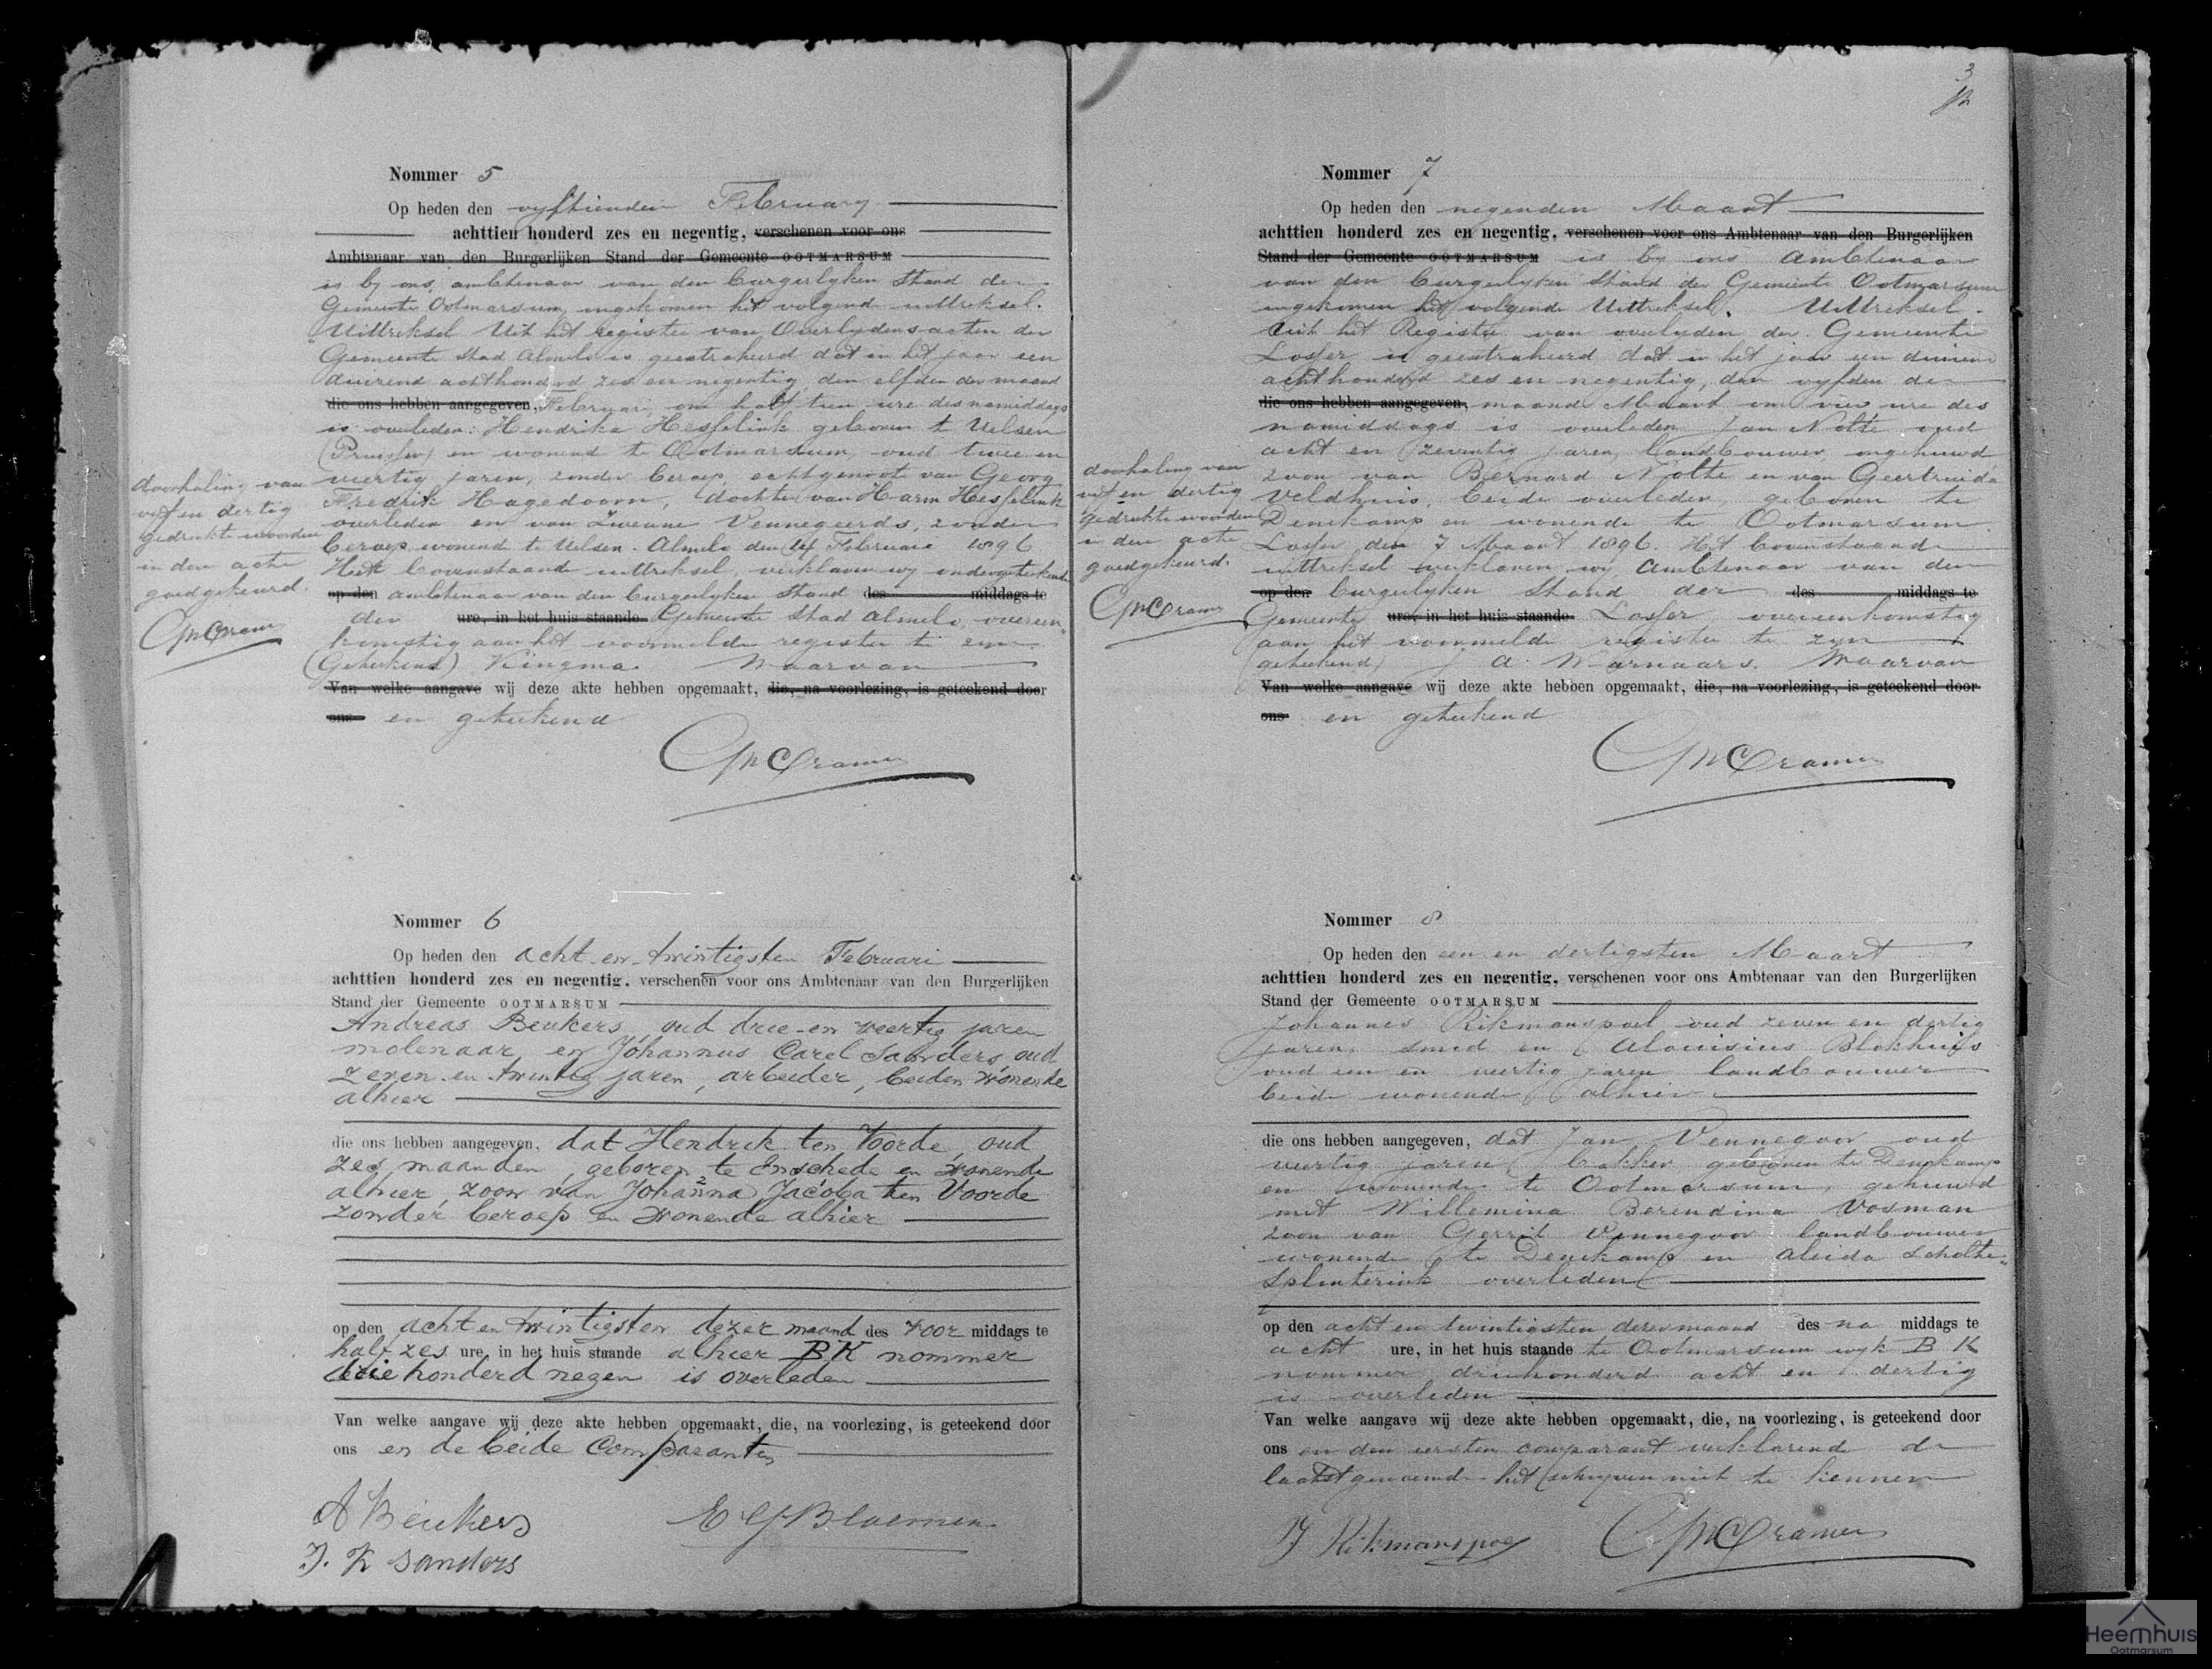 Nommer 5
Op heden den vyftienden February
achttien honderd zes en negentig, verschenen voor ons
Ambtenaar van den Burgerlijken Stand der Gemeente OOTMARSUM
is by ons, ambtenaar van den burgerlyken Stand der
Gemeente Ootmarsum, ingekomen het volgend uittreksel.
"Uittreksel Uit het register van Overlydens acten der
Gemeente Stad Almelo is geextraheerd dat in het jaar een
duizend achthonderd zes en negentig, den elfden der maand
die ons hebben aangegeven, Februari, om half tien ure des namiddags
is overleden: Hendrika Hesselink geboren te Uelsen
(Pruissen) en wonend te Ootmarsum, oud twee en
veertig jaren, zonder beroep, echtgenoote van Georg
Fredrik Hagedoorn, dochter van Harm Hesselink
overleden en van Zwenne Vennegeerds, zonder
beroep wonend te Uelsen. Almelo den 14 Februari 1896
Het bovenstaande uittreksel, verklaren wy ondergeteekende
op den ambtenaar van den burgerlyken Stand des middags te
der ure, in het huis staande Gemeente Stad Almelo, overeen
komstig aan het voormelde register te zyn.
(Geteekend) Kingma. Waarvan
Van welke aangave wij deze akte hebben opgemaakt, die, na voorlezing, is geteekend door
ons en geteekend
CMCramer
doorhaling van
vyf en dertig
gedrukte woorden
in den acte
goedgekeurd.
CMCramer
Nommer 6
Op heden den acht-en-twintigsten Februari
achttien honderd zes en negentig, verschenen voor ons Ambtenaar van den Burgerlijken
Stand der Gemeente OOTMARSUM
Andreas Beukers, oud drie-en-veertig jaren
molenaar, en Johannus Carel Sanders, oud
zeven-en-twintig jaren, arbeider, beiden wonende
alhier
die ons hebben aangegeven, dat Hendrik ten Voorde, oud
zes maanden, geboren te Enschede en wonende
alhier, zoon van Johanna Jacoba ten Voorde
zonder beroep en wonende alhier
op den acht en twintigsten dezer maand des voor middags te
half zes ure, in het huis staande alhier BK nommer
driehonderd negen is overleden
Van welke aangave wij deze akte hebben opgemaakt, die, na voorlezing, is geteekend door
ons en de beide Comparanten
A Beukers
E G Bloemen
J. K Sanders
3
Nommer 7
Op heden den negenden Maart
achttien honderd zes en negentig, verschenen voor ons Ambtenaar van den Burgerlijken
Stand der Gemeente OOTMARSUM is by ons Ambtenaar
van den burgerlyken Stand der Gemeente Ootmarsum
ingekomen het volgende Uittreksel. Uittreksel.
Uit het Register van overlyden der Gemeente
Losser is geextraheerd dat in het jaar een duizend
achthonderd zes en negentig, den vyfden der
die ons hebben aangegeven, maand Maart om vier ure des
namiddags is overleden Jan Nolte oud
acht en zeventig jaren, landbouwer, ongehuwd
zoon van Bernard Nolte en van Geertruida
Veldhuis, beide overleden, geboren te
Denekamp en wonende te Ootmarsum.
Losser den 7 Maart 1896. Het bovenstaande
uittreksel verklaren wij Ambtenaar van den
op den burgerlyken Stand der des middags te
Gemeente ure, in het huis staande Losser, overeenkomstig
aan het voormelde register te zyn
(geteekend) J A Warnaars. Waarvan
Van welke aangave wij deze akte hebben opgemaakt, die, na voorlezing, is geteekend door
ons en geteekend
CMCramer
doorhaling van
vyf en dertig
gedrukte woorden
in den acte
goedgekeurd.
CMCramer
Nommer 8
Op heden den een en dertigsten Maart
achttien honderd zes en negentig, verschenen voor ons Ambtenaar van den Burgerlijken
Stand der Gemeente OOTMARSUM
Johannes Rikmanspoel oud zeven en dertig
jaren, smid en Alouisius Blokhuis
oud een en veertig jaren landbouwer
beide wonende alhier
die ons hebben aangegeven, dat Jan Vennegoor oud
veertig jaren, bakker, geboren te Denekamp
en wonende te Ootmarsum, gehuwd
met Willemina Berendina Vosman
zoon van Gerrit Vennegoor landbouwer
wonende te Denekamp en Aleida Scholte
Splinterink overleden
op den acht en twintigsten dezer maand des na middags te
acht ure, in het huis staande te Ootmarsum wyk B K
nommer driehonderd acht en dertig
is overleden
Van welke aangave wij deze akte hebben opgemaakt, die, na voorlezing, is geteekend door
ons en den eersten comparant verklarende de
laatstgenoemde het schryven niet te kennen
J Rikmanspoel
CMCramer
Heemhuis
Ootmarsum